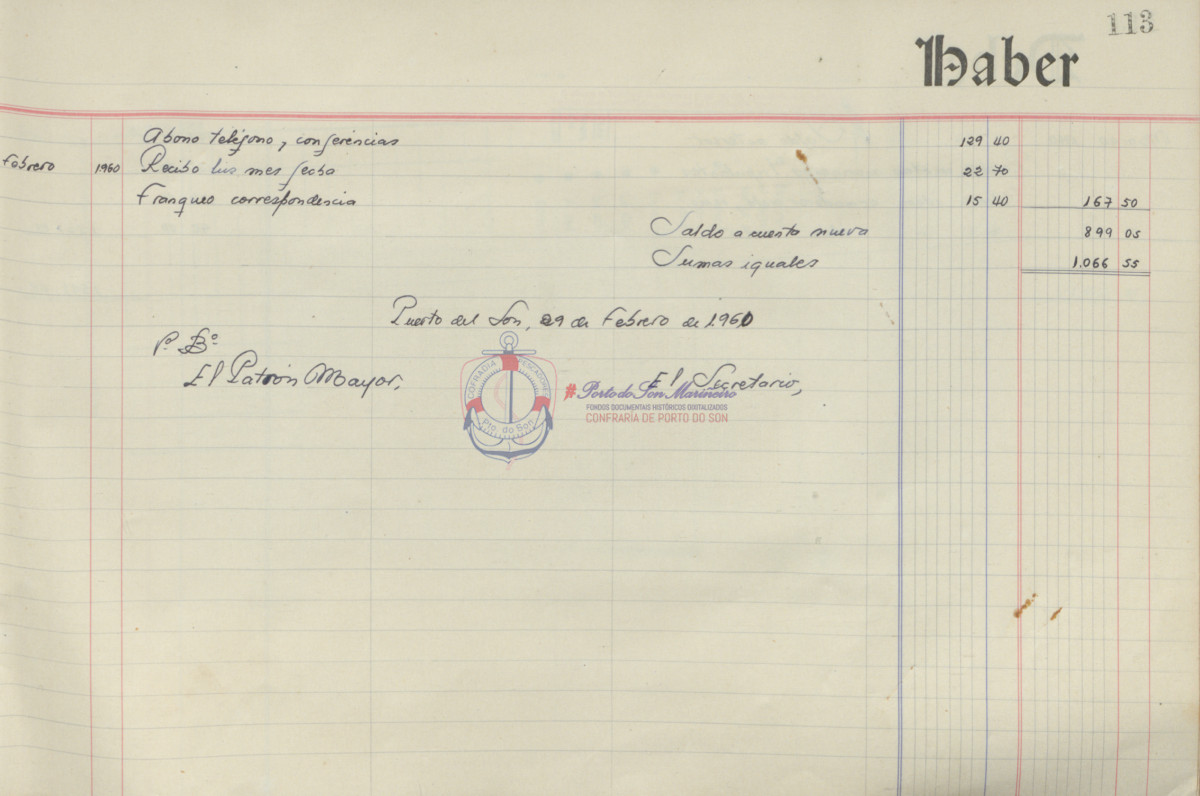 113
Haber
Abono teléfono, conferencias 129 40
Febrero 1.960 Recibo luz mes fecha 22 70
Franqueo correspondencia 15 40 167 50
Saldo a cuenta nueva 899 05
Sumas iguales 1.066 55
Puerto del Son, 29 de Febrero de 1.960
Vº Bº
El Patrón Mayor,
El Secretario,
COFRADIA PESCADORES
Pto. do Son
#Porto do Son Mariñeiro
FONDOS DOCUMENTAIS HISTÓRICOS DIXITALIZADOS
CONFRARÍA DE PORTO DO SON